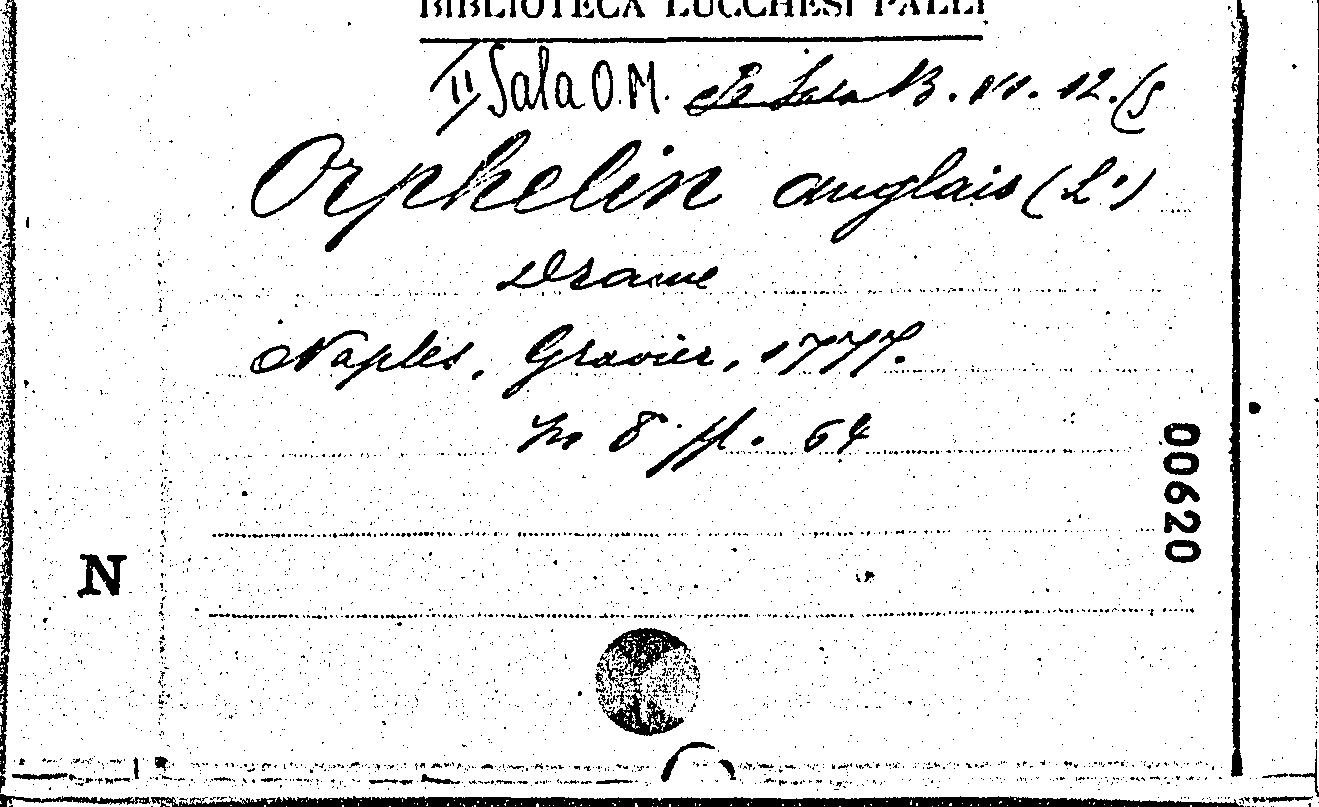 BIBLIOTECA LUCCHESI PALLI
II Sala O.M. B. VI. 12. (5
Orphelin anglais (L')
Drame
Naples, Gravier, 1777.
In 8° ff. 64
00620
N